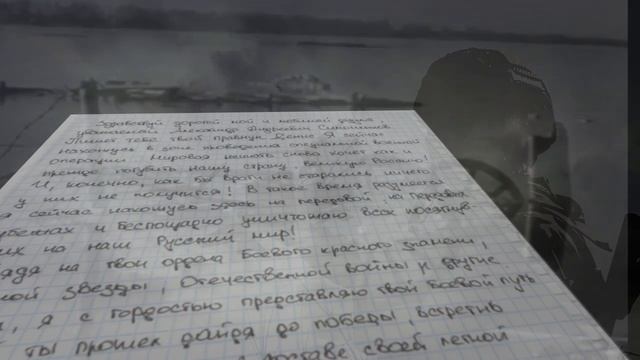 Здравствуй дорогой мой и любимый дедуля,
уважаемый Александр Андреевич
Пишет тебе твой правнук Денис Я сейчас
нахожусь в зоне проведения специальной военной
операции. Мировая нечисть снова хочет как и
прежде погубить нашу страну, великую Россию!
И, конечно, как бы враги не старались ничего
у них не получится! В такое время разумеется
я сейчас нахожусь здесь на передовой, на передовых
рубежах и беспощадно уничтожаю всех посягнув-
их на наш Русский мир!
ядя на твои ордена Боевого красного знамени,
ной звезды, Отечественной войны и другие
я с гордостью представляю твой боевой путь
ты прошел дойдя до победы, встретив
составе своей летной